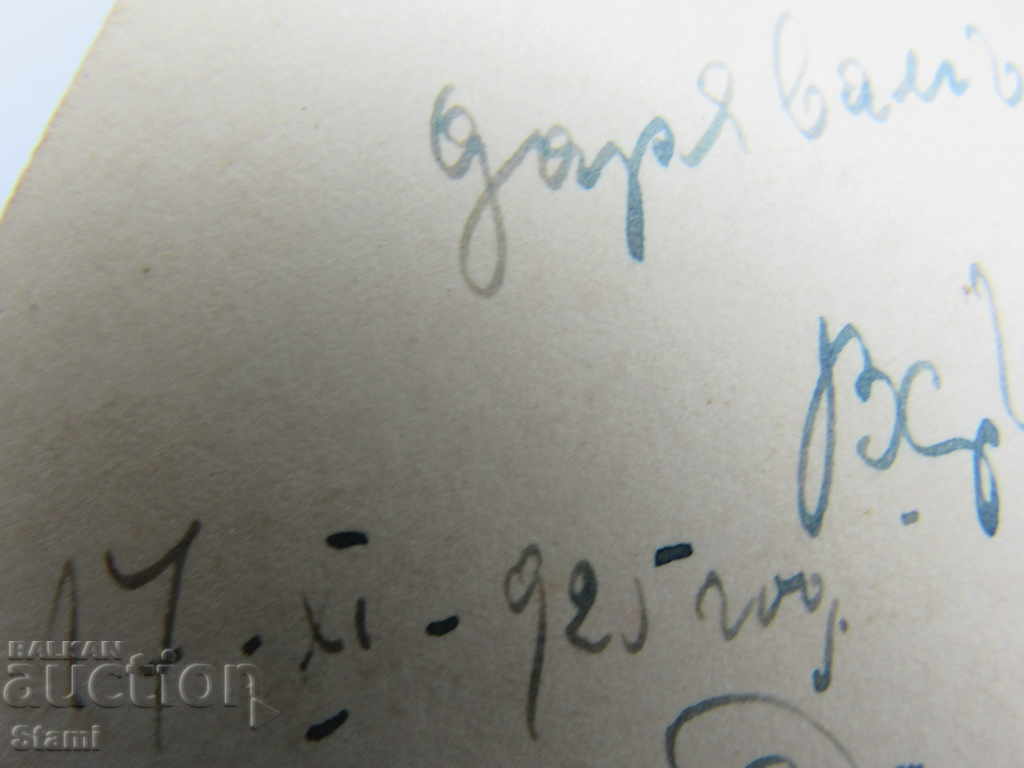 даря вамъ
17-XI-925 год.
BALKAN
auction
Stami